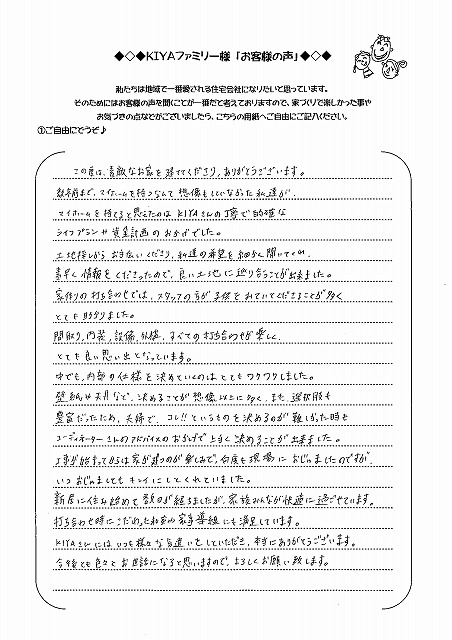 ◆◇◆KIYAファミリー様「お客様の声」◆◇◆
私たちは地域で一番愛される住宅会社になりたいと思っています。
そのためにはお客様の声を聞くことが一番だと考えておりますので、家づくりで楽しかった事や
お気づきの点などがございましたら、こちらの用紙へご自由にご記入ください。
①ご自由にどうぞ♪
この度は、素敵なお家を建ててくださり、ありがとうございます。
数年前まで、マイホームを持つなんて想像もしていなかった私達が、
マイホームを持てると思えたのはKIYAさんの丁寧で的確な
ライフプランや資金計画のおかげでした。
土地探しからお手伝いくださり、私達の希望を細かく聞いてくれ、
素早く情報をくださったので、良い土地に巡り合うことが出来ました。
家作りの打ち合わせでは、スタッフの方が子供をみていてくださることが多く
とても助かりました。
間取り、内装、設備、外構、すべての打ち合わせが楽しく、
とても良い思い出となっています。
中でも、内部の仕様を決めていくのはとてもワクワクしました。
壁紙や天井など、決めることが想像以上に多く、また、選択肢も
豊富だったため、夫婦で、コレ!!というものを決めるのが難しかった時も
コーディネーターさんのアドバイスのおかげで上手く決めることが出来ました。
工事が始まってからは家が建つのが楽しみで、何度も現場におじゃましたのですが、
いつおじゃましてもキレイにしてくれていました。
新居に住み始めて数ヵ月が経ちましたが、家族みんなが快適に過ごせています。
打ち合わせ時にこだわった家事導線にも満足しています。
KIYAさんにはいつも様々な気遣いをしていただき、本当にありがとうございます。
今後とも色々とお世話になると思いますので、よろしくお願い致します。